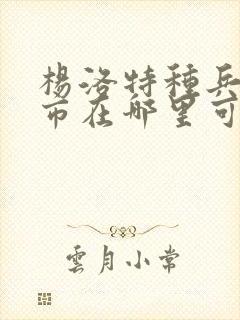 楊洛特種兵
市在哪里可
雲月小常